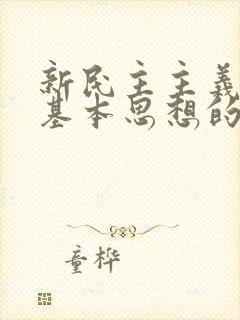 新民主主义
基本思想的
童桦